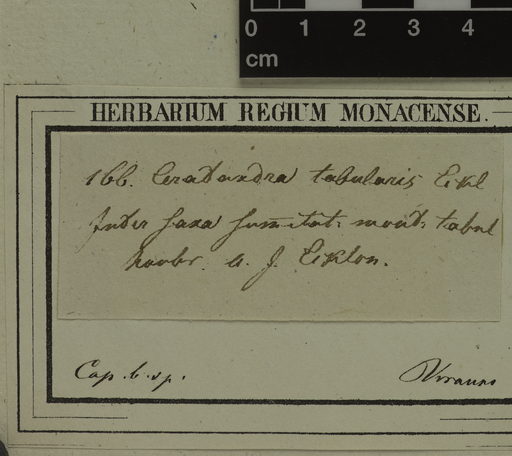 0 1 2 3 4
cm
HERBARIUM REGIUM MONACENSE.
166. Ceratandra tabularis Eckl
Inter saxa summitat: mont: tabul
Novbr. a. J. Eklon.
Cap. b. sp.